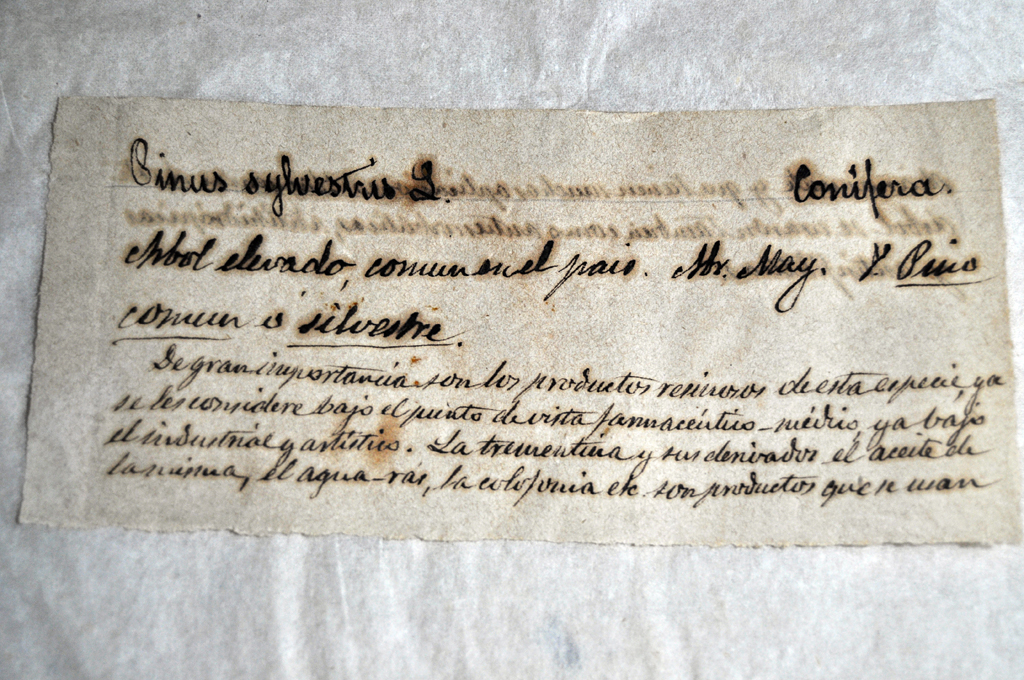 Pinus sylvestris L. Conífera.
Arbol elevado, comun en el pais. Abr. May. V. Pino
comun ó silvestre.
De gran importancia son los productos resinosos de esta especie, ya
se les considere bajo el punto de vista farmacéutico-médico, ya bajo
el industrial y artístico. La trementina y sus derivados el aceite de
la misma, el agua-rás, la colofonia etc. son productos que se usan